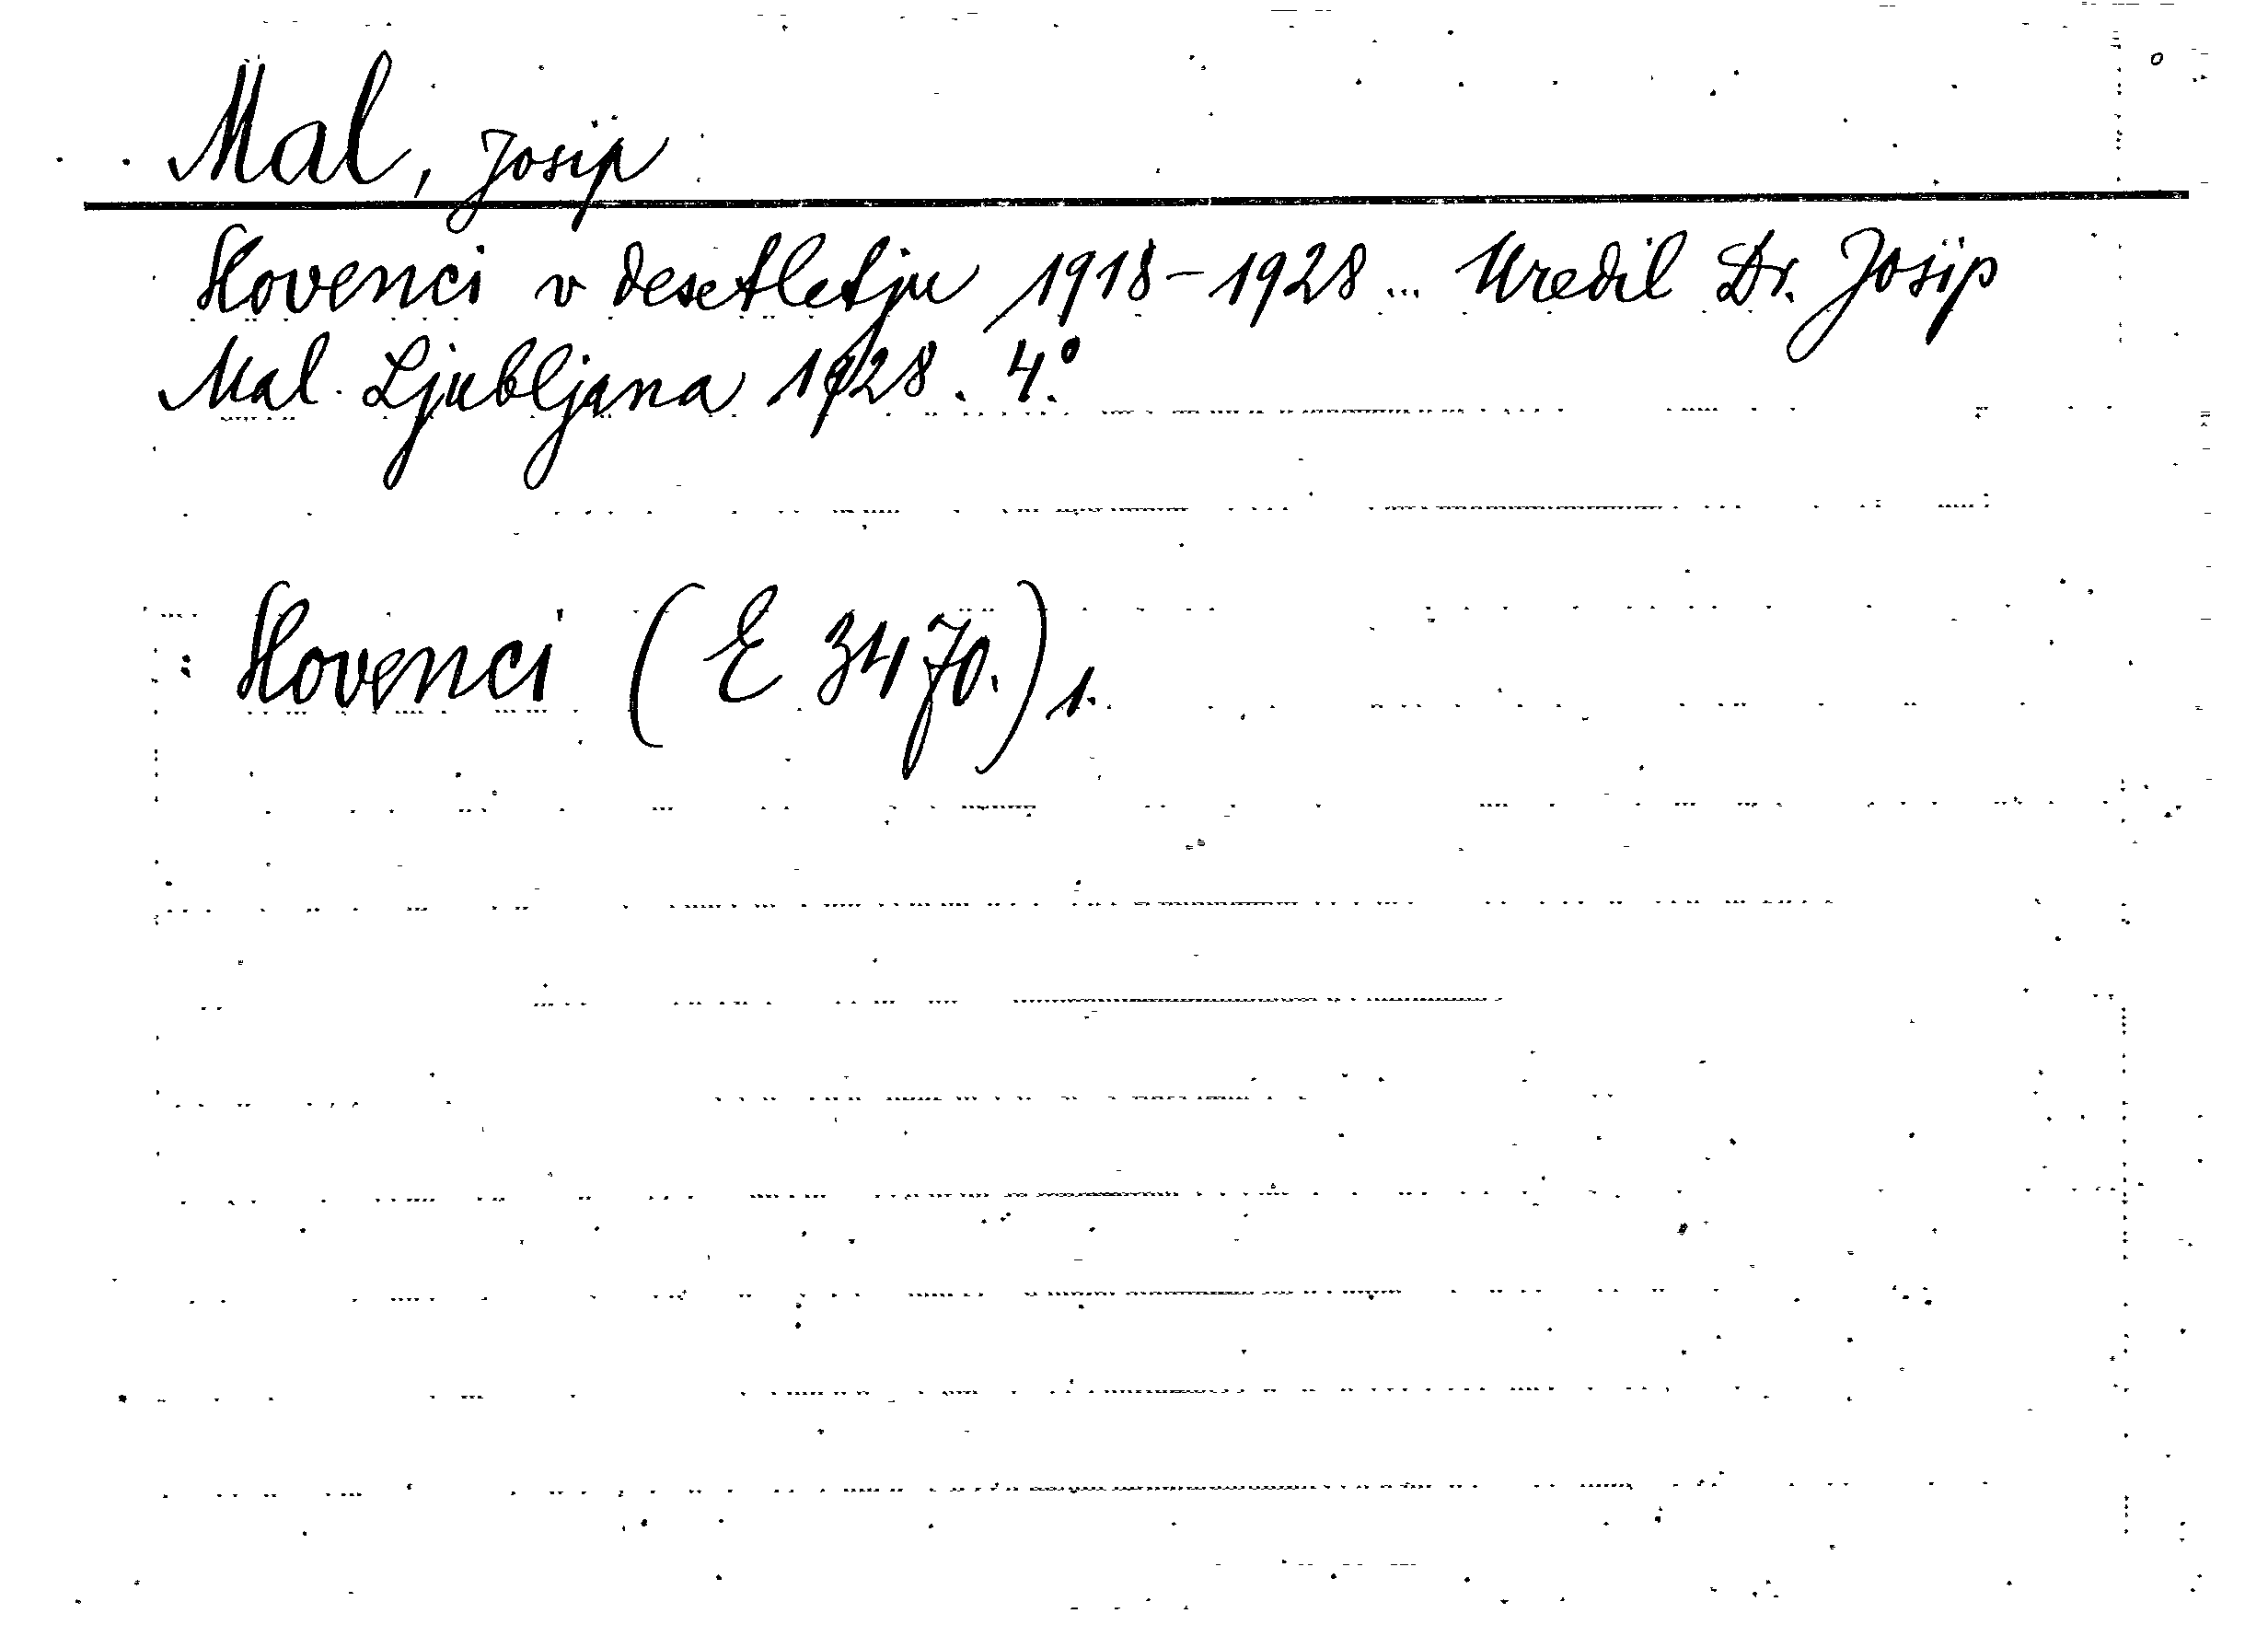 Mal, Josip
Slovenci v desetletju 1918-1928... Uredil Dr. Josip
Mal. Ljubljana 1928. 4.º
Slovenci (E 3470.) 1.